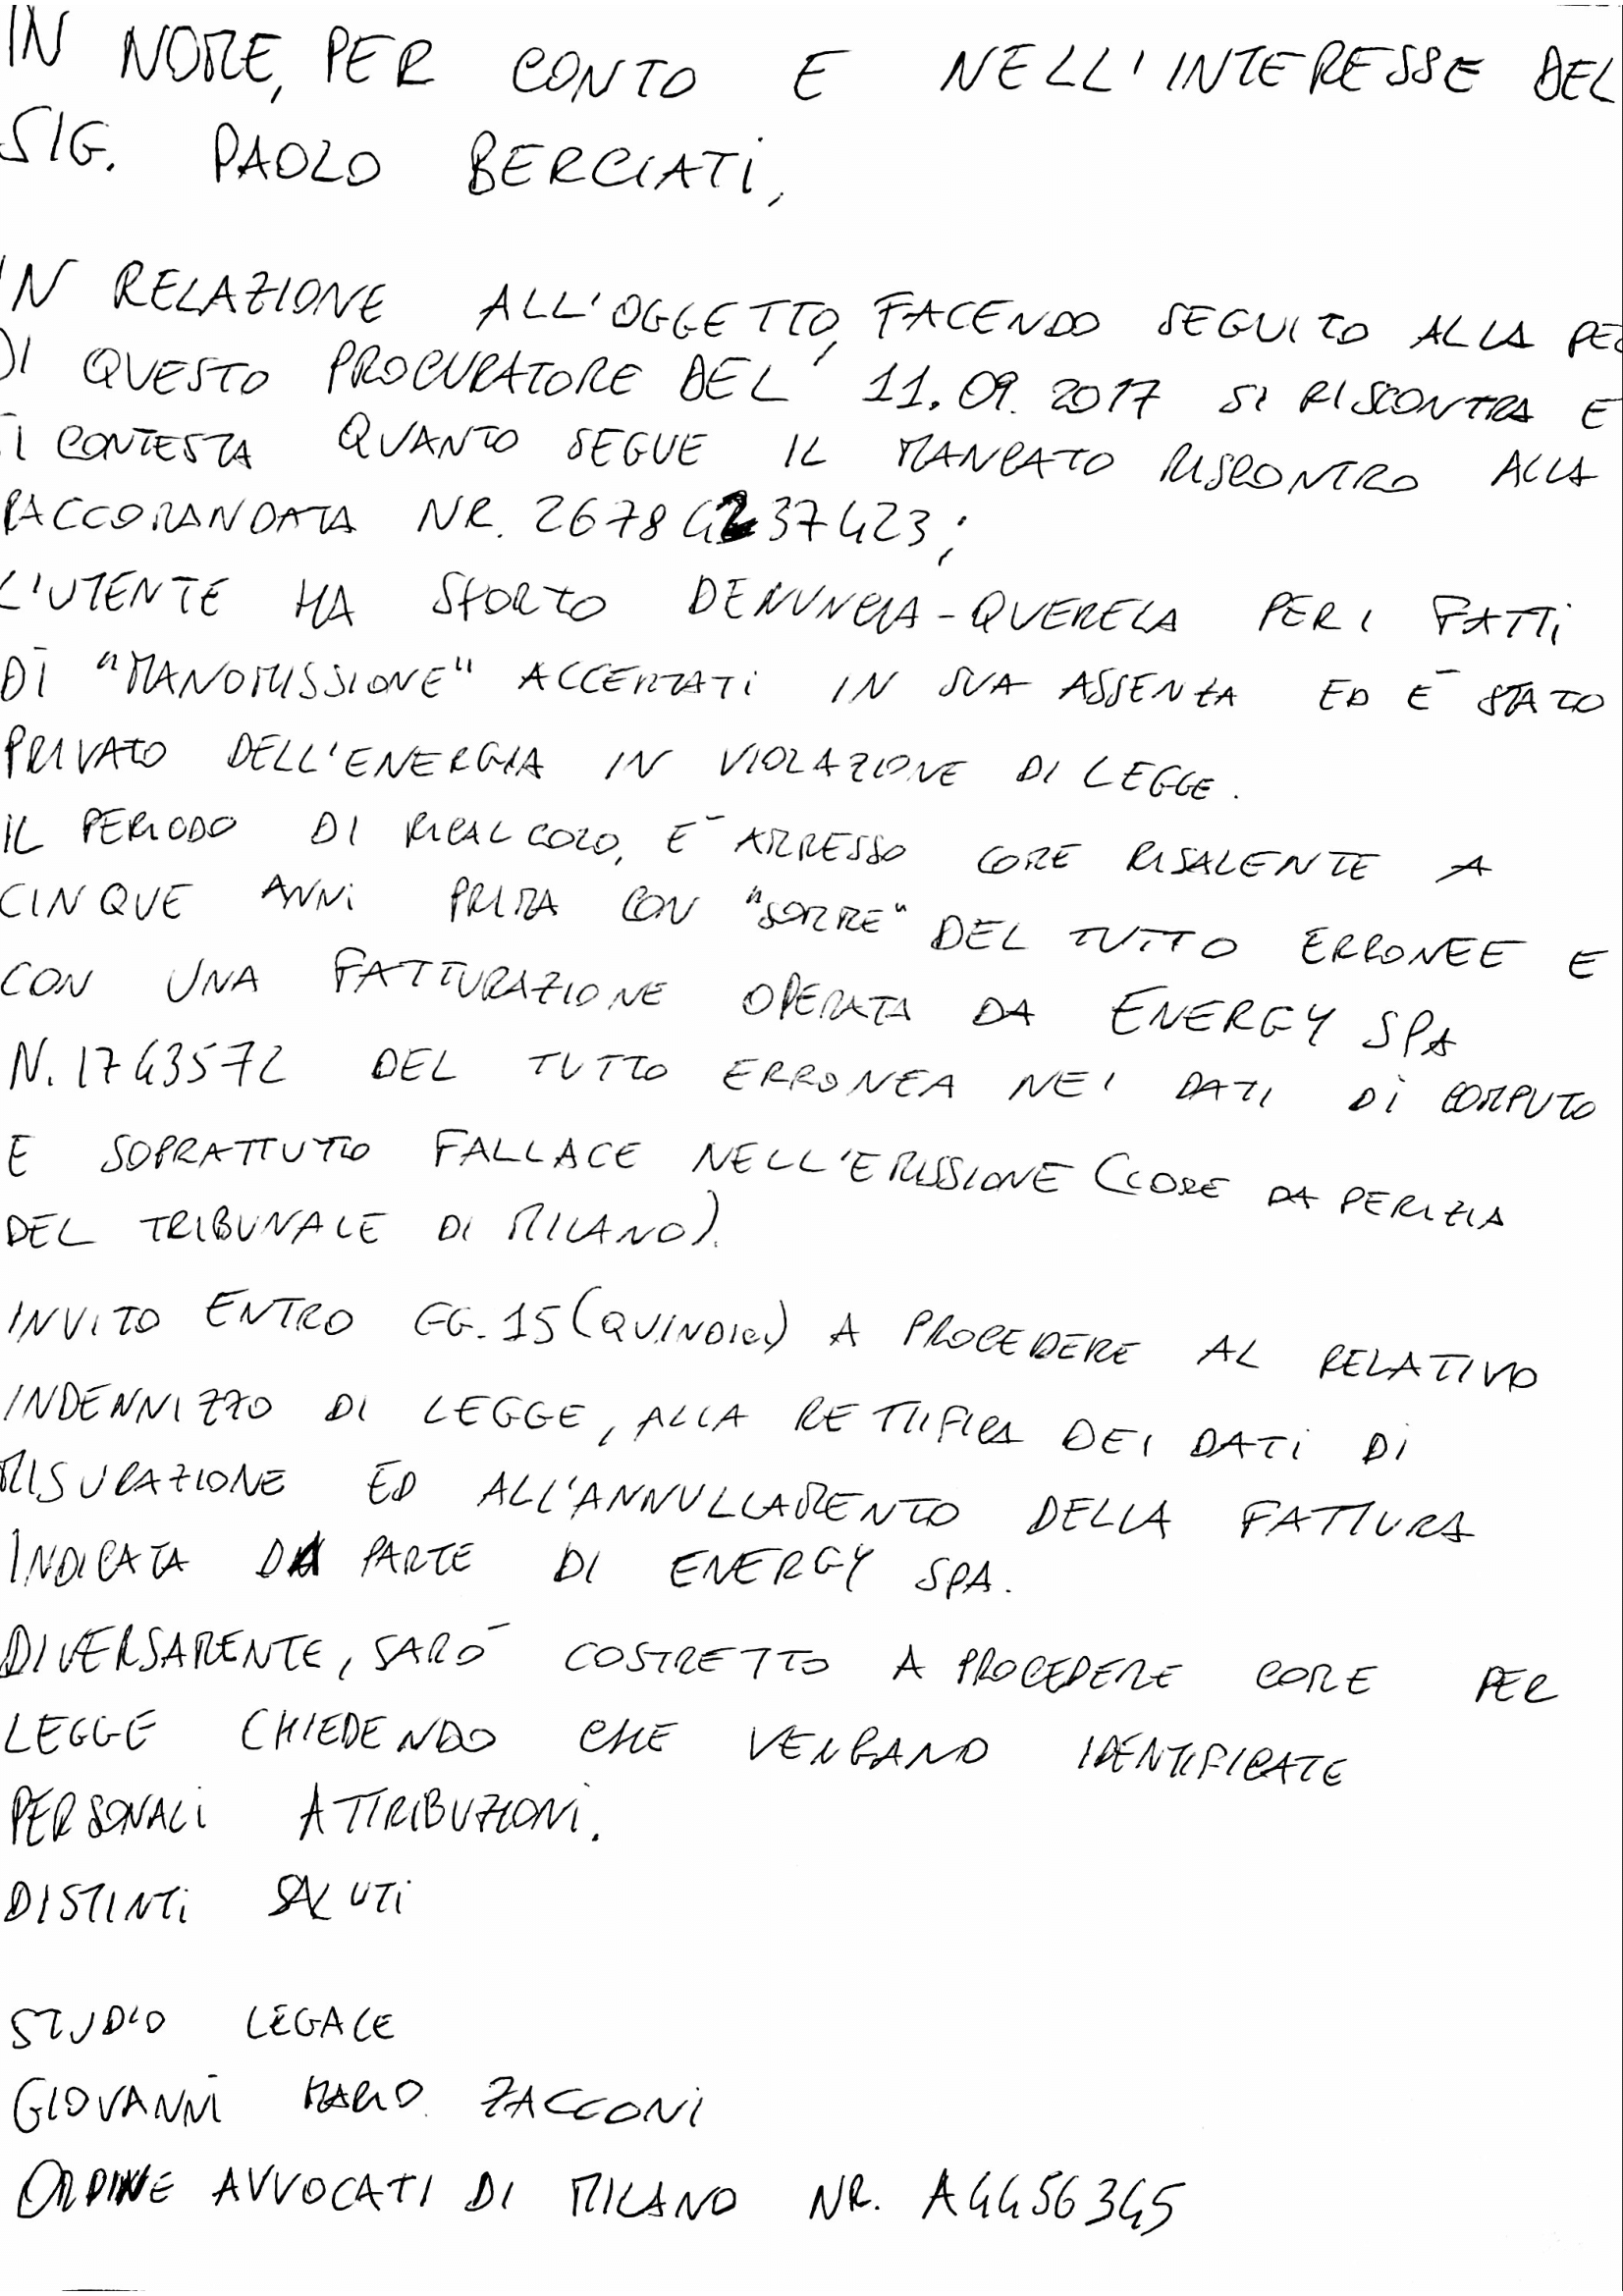 IN NOME, PER CONTO E NELL'INTERESSE DEL
SIG. PAOLO BERCIATI,
IN RELAZIONE ALL'OGGETTO, FACENDO SEGUITO ALLA PEC
DI QUESTO PROCURATORE DEL 11.09.2017 SI RISCONTRA E
SI CONTESTA QUANTO SEGUE IL MANCATO RISCONTRO ALLA
RACCOMANDATA NR. 26784237423;
L'UTENTE HA SPORTO DENUNCIA-QUERELA PER I FATTI
DI "MANOMISSIONE" ACCERTATI IN SUA ASSENZA ED È STATO
PRIVATO DELL'ENERGIA IN VIOLAZIONE DI LEGGE.
IL PERIODO DI RICALCOLO, È AMMESSO COME RISALENTE A
CINQUE ANNI PRIMA CON "SOMME" DEL TUTTO ERRONEE E
CON UNA FATTURAZIONE OPERATA DA ENERGY SPA
N. 1743572 DEL TUTTO ERRONEA NEI DATI DI COMPUTO
E SOPRATTUTTO FALLACE NELL'EMISSIONE (COME DA PERIZIA
DEL TRIBUNALE DI MILANO).
INVITO ENTRO GG. 15 (QUINDICI) A PROCEDERE AL RELATIVO
INDENNIZZO DI LEGGE, ALLA RETTIFICA DEI DATI DI
MISURAZIONE ED ALL'ANNULLAMENTO DELLA FATTURA
INDICATA DA PARTE DI ENERGY SPA.
DIVERSAMENTE, SARÒ COSTRETTO A PROCEDERE COME PER
LEGGE CHIEDENDO CHE VENGANO IDENTIFICATE
PERSONALI ATTRIBUZIONI.
DISTINTI SALUTI
STUDIO LEGALE
GIOVANNI MARIO ZACCONI
ORDINE AVVOCATI DI MILANO NR. A4456345